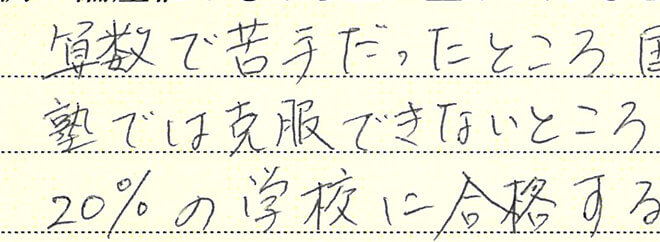 算数で苦手だったところ 国
塾では克服できないところ
20%の学校に合格する